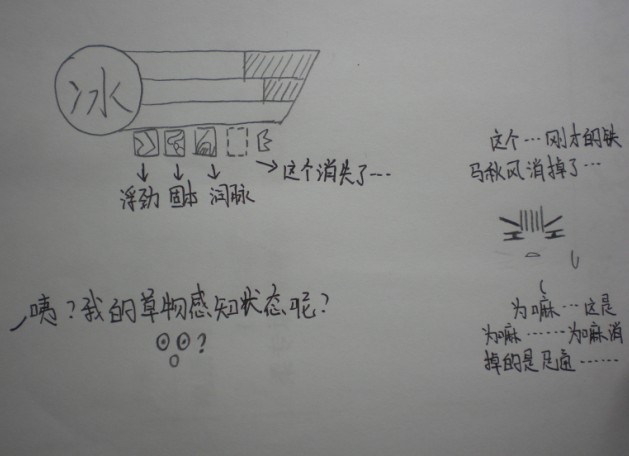 冰
浮劲 固本 润脉
这个消失了…
咦?我的草物感知状态呢?
?
这个…刚才的铁
马秋风消掉了…
为嘛…这是
为嘛……为嘛消
掉的是